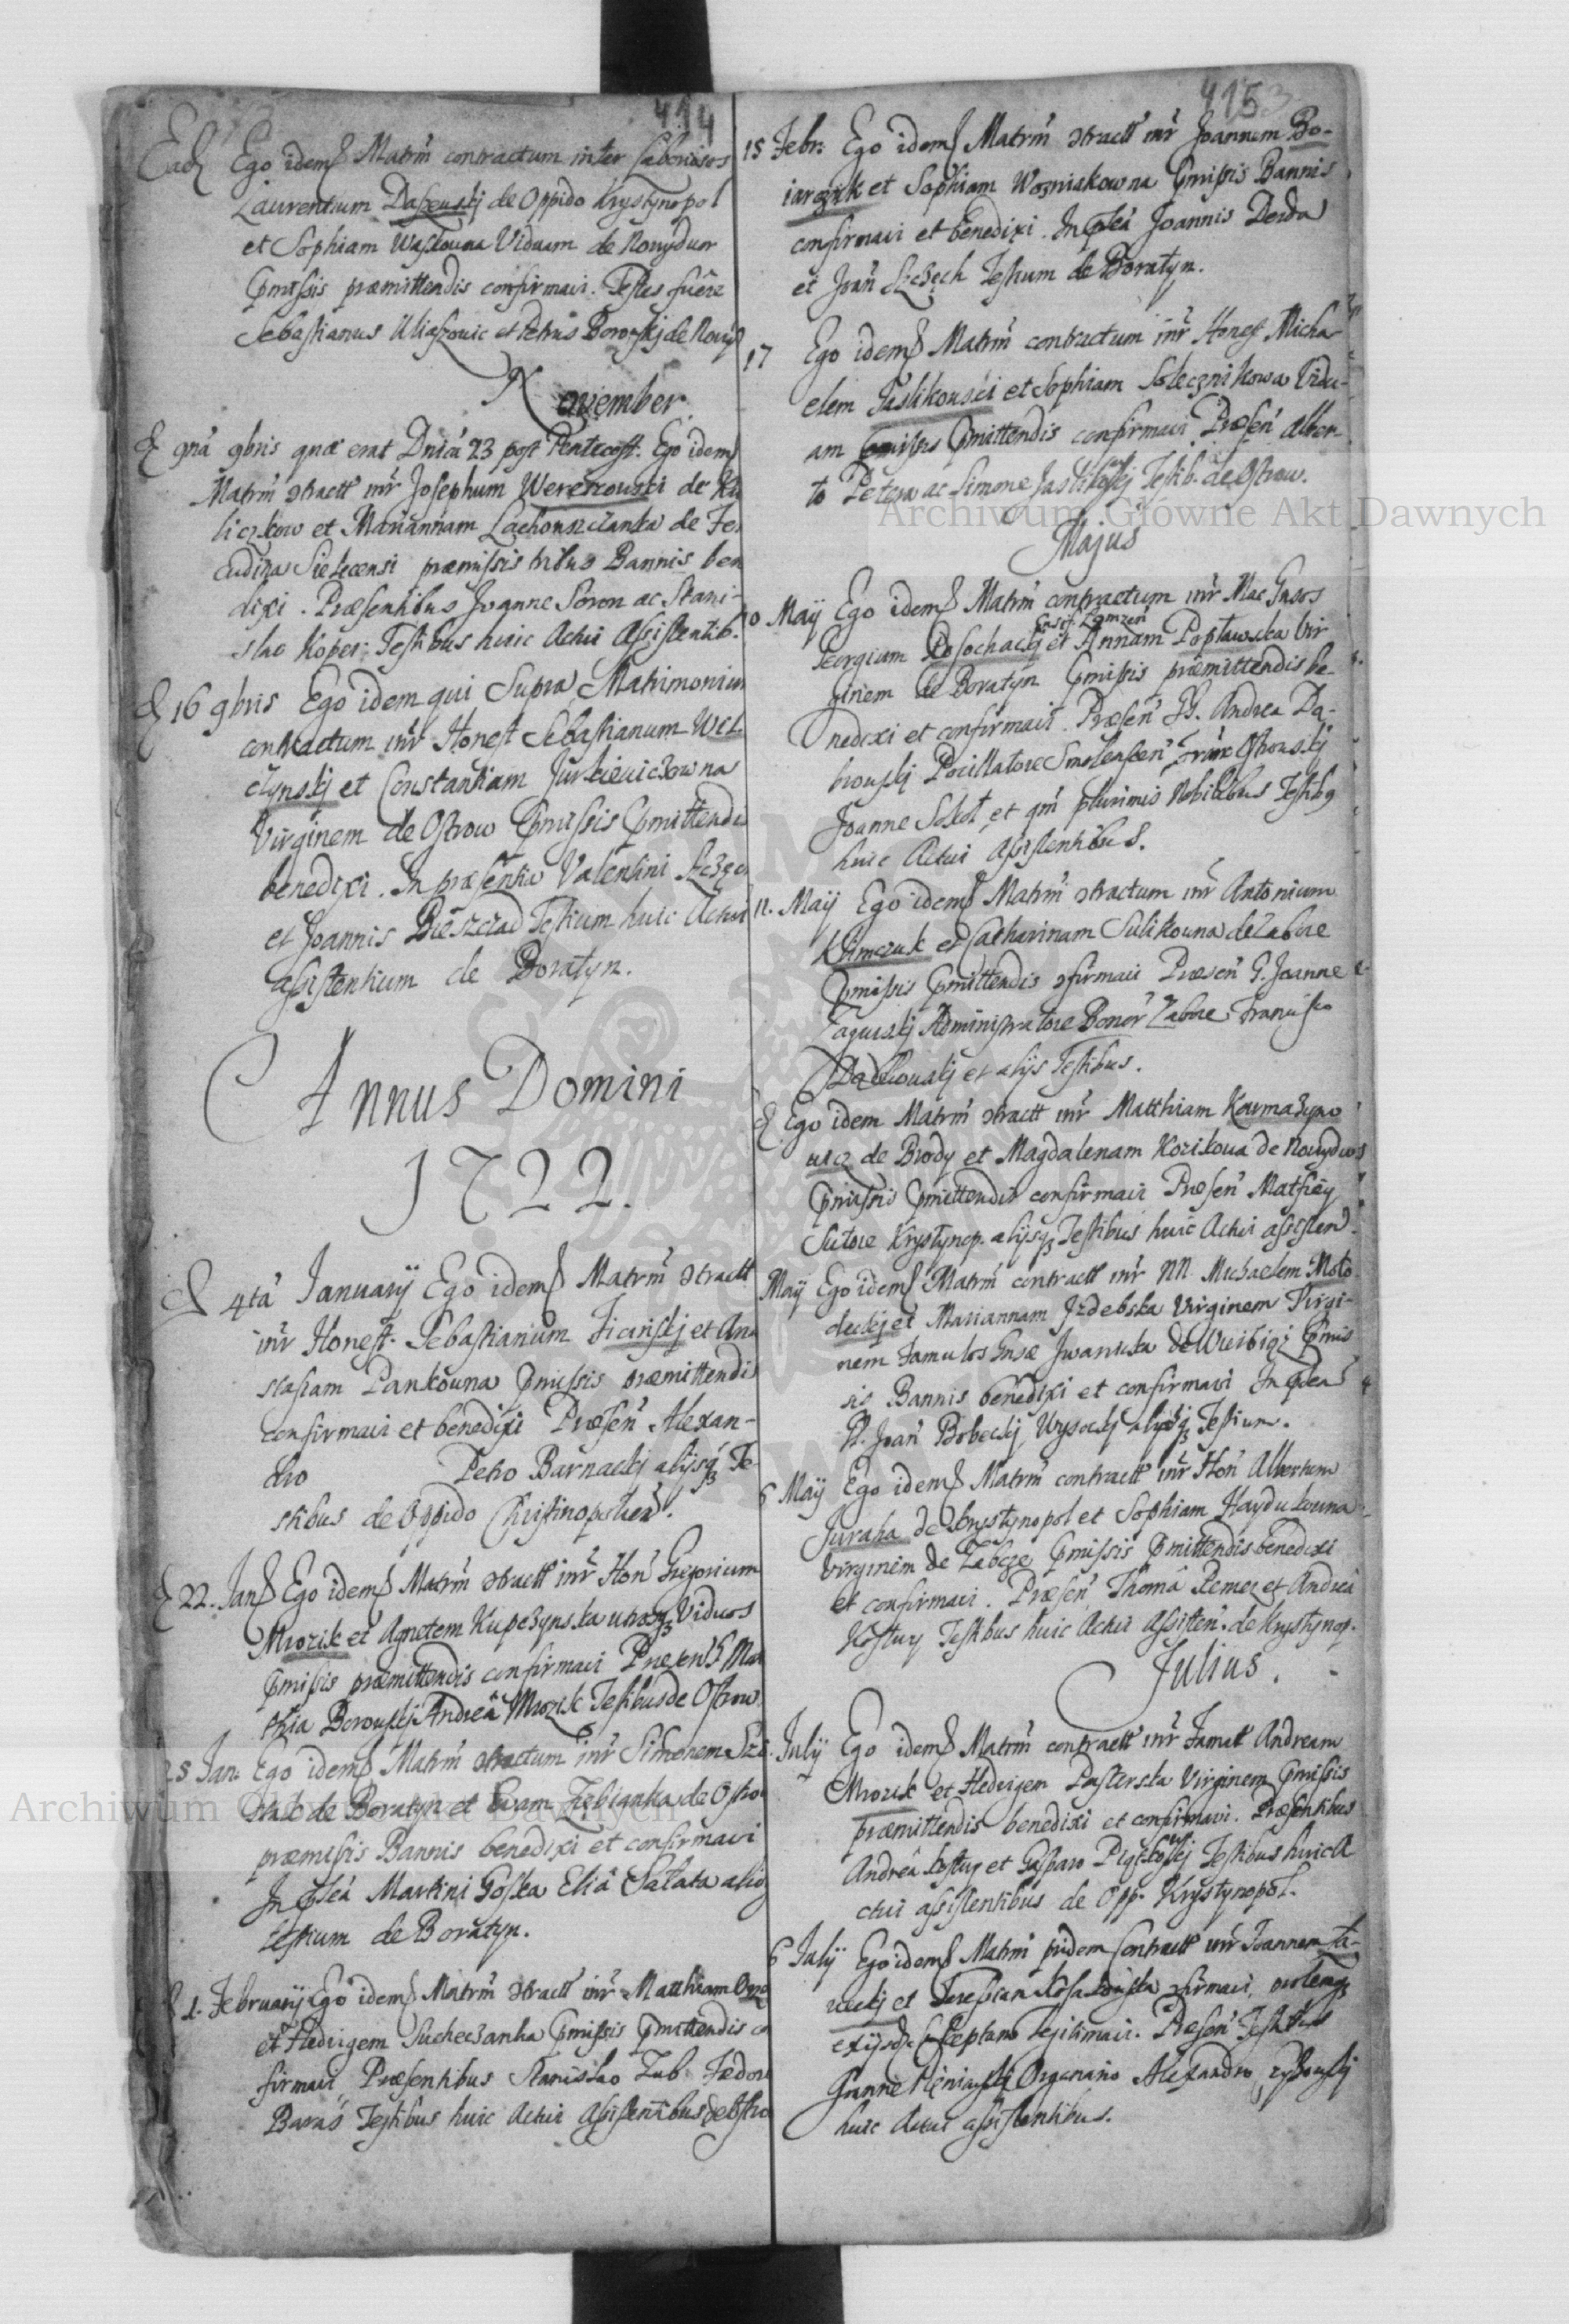 414
Ead Ego idem Matrm contractum inter Laboriosos
Laurentium Daszeuskj de Oppido Krystynopol
et Sophiam Waskouna Viduam de Nouydwor
Pmissis præmittendis confirmavi. Testes fuere
Sebastianus Uliaszouic et Petrus Borowskj de Nouyd
November
gnå 9bris quæ erat Dnica 23 post Pentecost. Ego idem
Matrm Stractt inr Josephum Wereszouski de Ku
liczkow et Mariannam Lachouszczanka de
Sielecensi præmissis tribus Bannis ben
dixi. Præsentibus Joanne Soron ac Stani-
slao Koper: Testibus huic Actui Assistentib.
16 9bris Ego idem qui Supra Matrimonium
contractum inr Honest Sebastianum Wel
czynskj et Constantiam Jurkieuiczowna
Virginem de Ostrow Pmissis Pmittendis
benedixi. In præsentia Valentini Szczęch
et Joannis Bieszczad Testium huic Actui
assistentium de Boratyn.
Annus Domini
1722.
4ta January Ego idem Matrm Stractt
inr Honest. Sebastianum Ficinskj et Ana
stasiam Pankouna Pmissis præmittendis
confirmavi et benedixi Præsen Alexan-
dro Petro Barnackj alijsq Te-
stibus de Oppido Christinopolien.
22. Jan Ego idem Matrm Stractt inr Hon Gregorium
Mrozik et Agnetem Kupczynska utrosq Viduos
Pmissis præmittendis confirmavi Præsen Mat
thia Borouskj Andreâ Mrozik Testibus de Ostrow
25 Jan: Ego idem Matrm Stractum inr Simonem Szc
de Boratyn et Evam Ziebianka de Ostro
præmissis Bannis benedixi et confirmavi
In Psea Martini Goska Eliâ Sałata alio
testium de Boratyn.
1. February Ego idem Matrm Stractt inr Matthiam
et Hedvigem Sucheczanka Pmissis Pmittendis co
firmavi, Præsentibus Stanislao Zub. Fedor
Baras Testibus huic Actui Assistentibus de Ostro
4153
15 Febr: Ego idem Matrm Stractt inr Joannem Bo-
iarczuk et Sophiam Wozniakowna Pmissis Bannis
confirmavi et benedixi. In Psea Joannis Derda
et Joan Szczęch Testium de Boratyn.
17 Ego idem Matrm contractum inr Honest Micha
elem Jaslikouski et Sophiam Solecznikowa Vidu-
am Pmissis Pmittendis confirmavi Præsen Alber-
to Petera ac Simone Jaslikoskj Testib. de Ostrow.
Majus
10 May Ego idem Matrm contractum inr Mac Gnsos
Georgium Rosochackj et Annam Popławska Vir
ginem de Boratyn Pmissis præmittendis be-
nedixi et confirmavi. Præsen GG. Andrea Dą-
brouskj Pocillatore Smolenscen Franc Ostrouskj
Joanne Sokoł et qm plurimis Nobilibus Testibq
huic Actui Assistentibus.
12. May Ego idem Matrm Stractum inr Antonium
Klimczuk et Catharinam Sulikouna de Zabcze
Pmissis Pmittendis Sfirmavi Præsen G. Joanne
Zagurskj Administratore Bonor Zabcze Francisco
et alijs Testibus.
Ego idem Matrm Stractt inr Matthiam Karmazyno
uicz de Brody et Magdalenam Kozikoua de Nouydwor
Pmissis Pmittendis confirmavi Præsen Mathiey
Sutore Krystynop. alijsq Testibus huic Actui assisten.
May Ego idem Matrm contractt inr NN. Michaelem Moto
deckj et Mariannam Izdebska Virginem Virgi-
nem Famulos Gnsæ Iwanicka de Pmis
sis Bannis benedixi et confirmavi In Psea
Joan Bobeckj Wysockj alijsq Testium.
6 May Ego idem Matrm contractt inr Hon Albertum
Juraha de Krystynopol et Sophiam Haydukouna
Virginem de Zabcze Pmissis Pmittendis benedixi
et confirmavi. Præsen Thomâ Remez et Andreâ
Kostury Testibus huic Actui Assisten. de Krystynop.
Julius.
July Ego idem Matrm contractt inr Famat Andream
Mrozik et Hedvigem Pasterska Virginem Pmissis
præmittendis benedixi et confirmavi. Præsentibus
Andreâ Kostuy et Gasparo Testibus huic A
ctui assistentibus de Opp. Krystynopol.
6 July Ego idem Matrm pridem Contractt inr Joannem
et Teressiam Sfirmavi,
Legitimavi. Præsen Testibus
Joanne Organario Alexandro
huic Actui assistentibus.
Archiwum Główne Akt Dawnych
Archiwum Główne Akt Dawnych